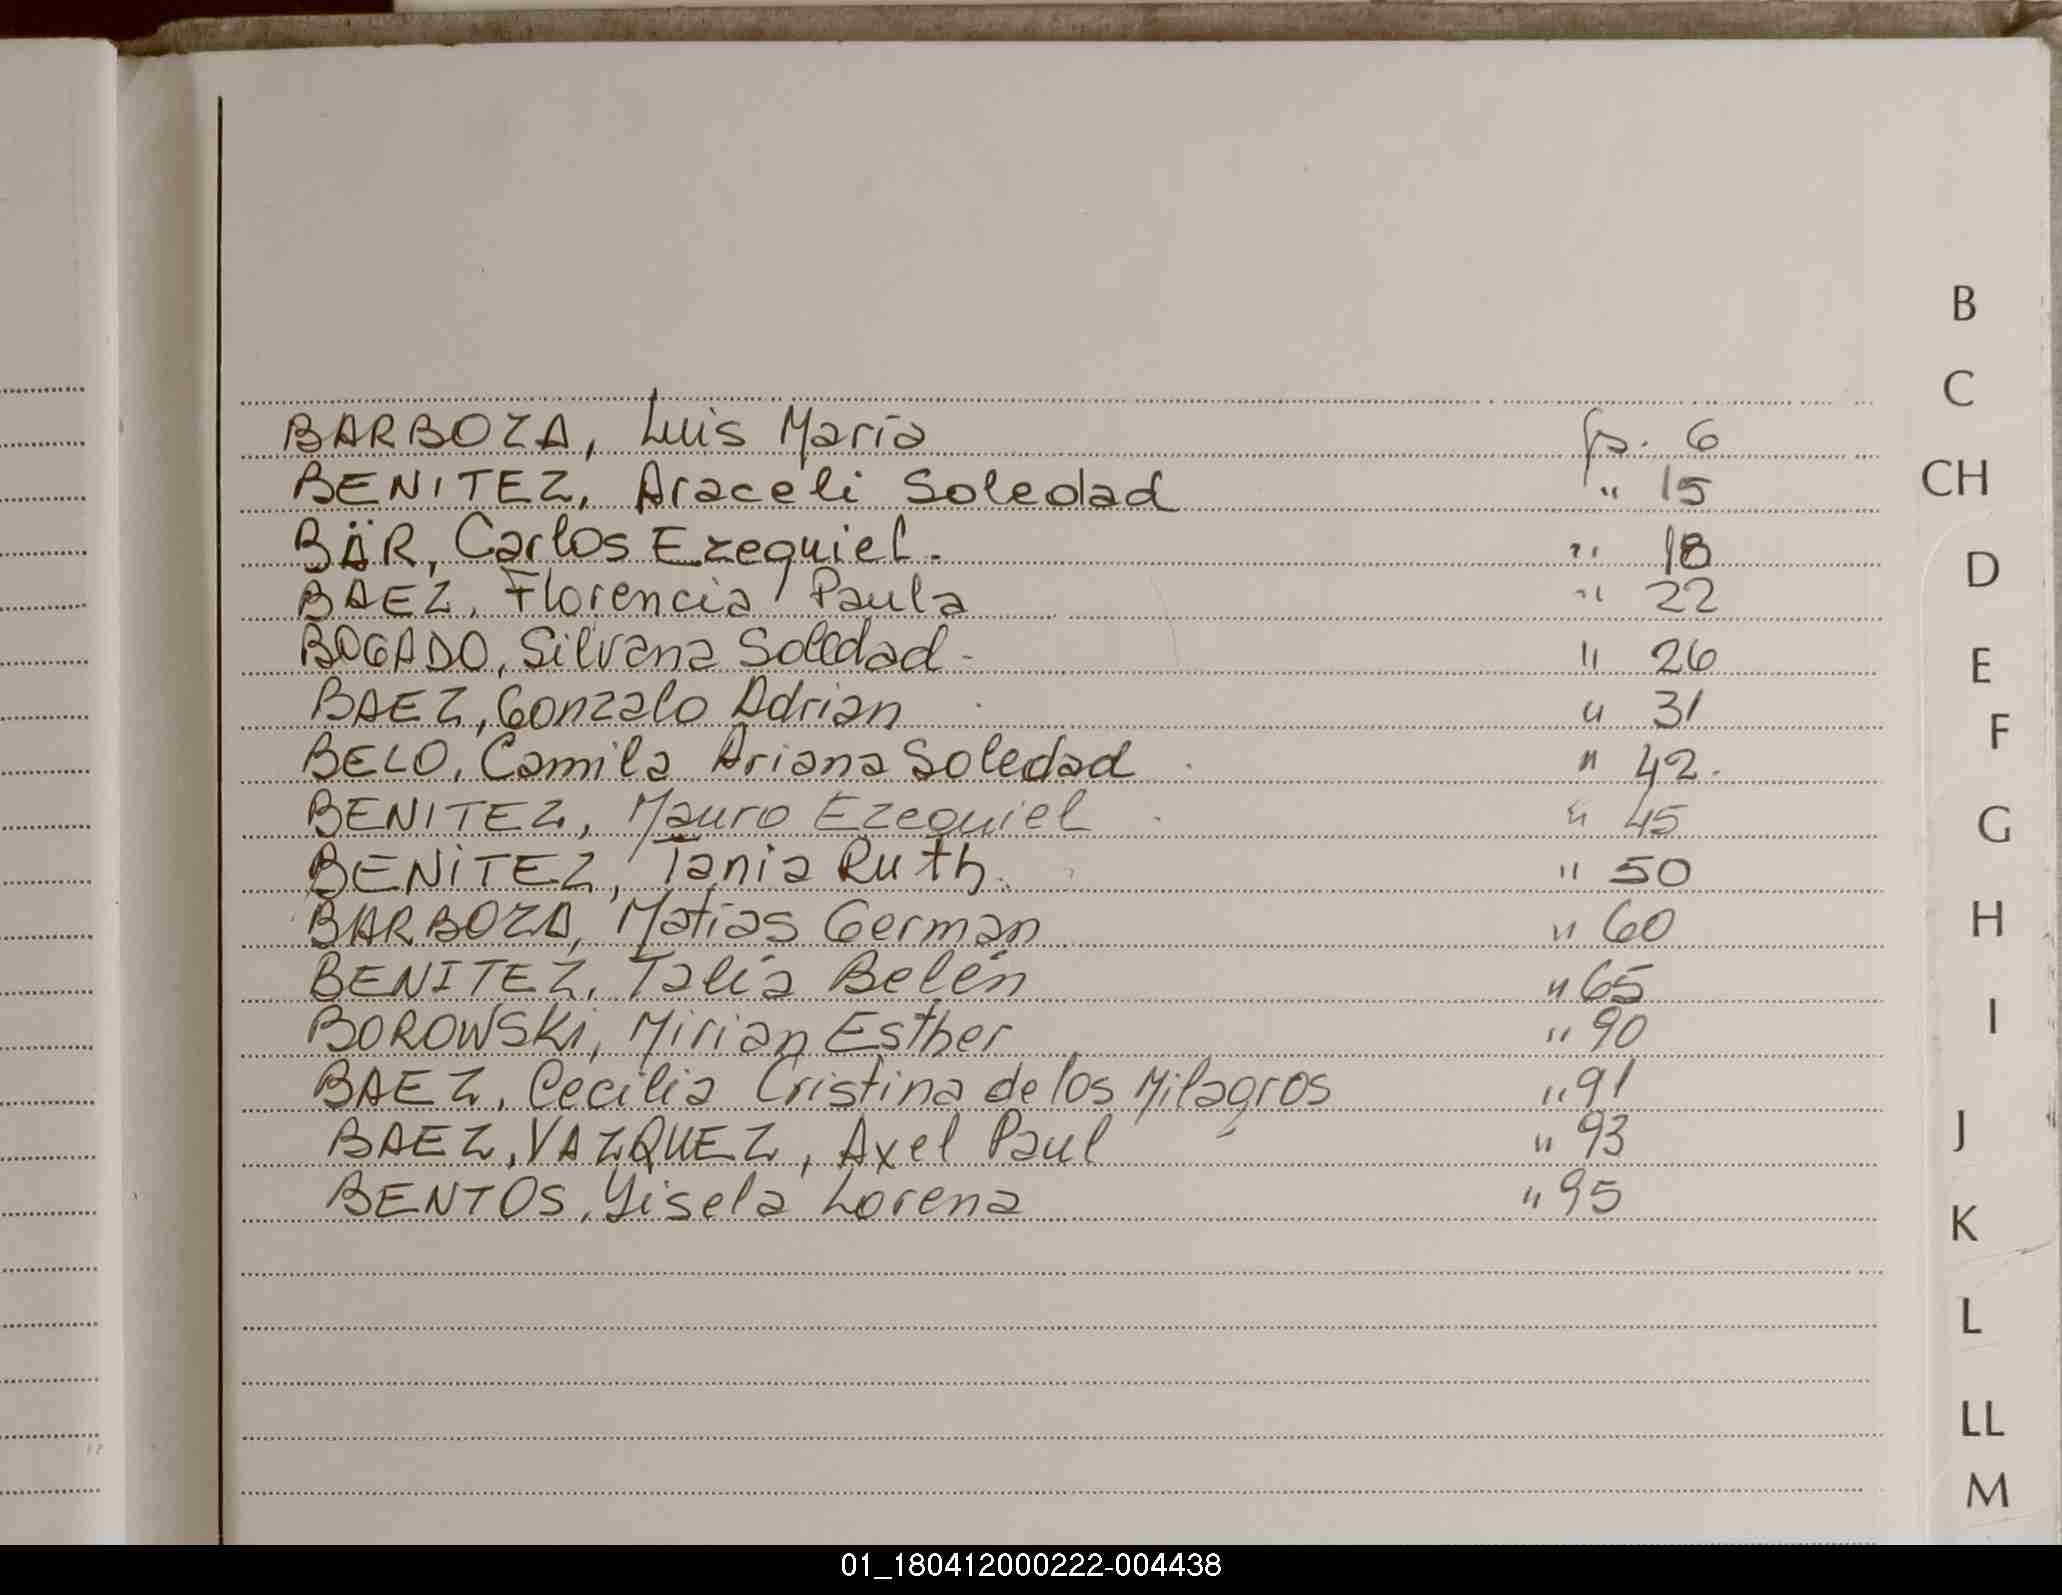 BARBOZA, Luis María fs. 6
BENITEZ, Araceli Soledad " 15
BÄR, Carlos Ezequiel. " 18
BAEZ, Florencia Paula " 22
BOGADO, Silvana Soledad- " 26
BAEZ, Gonzalo Adrian " 31
BELO, Camila Ariana Soledad " 42.
BENITEZ, Mauro Ezequiel " 45
BENITEZ, Tania Ruth. " 50
BARBOZA, Matías German " 60
BENITEZ, Talía Belén " 65
BOROWSKI, Mirian Esther " 90
BAEZ, Cecilia Cristina de los Milagros " 91
BAEZ, VAZQUEZ, Axel Paul " 93
BENTOS, Yisela Lorena " 95
B
C
CH
D
E
F
G
H
I
J
K
L
LL
M
01_180412000222-004438